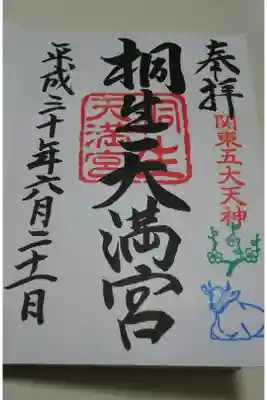 奉拝
関東五大天神
桐生天満宮
桐生天満宮
平成三十年六月二十一日